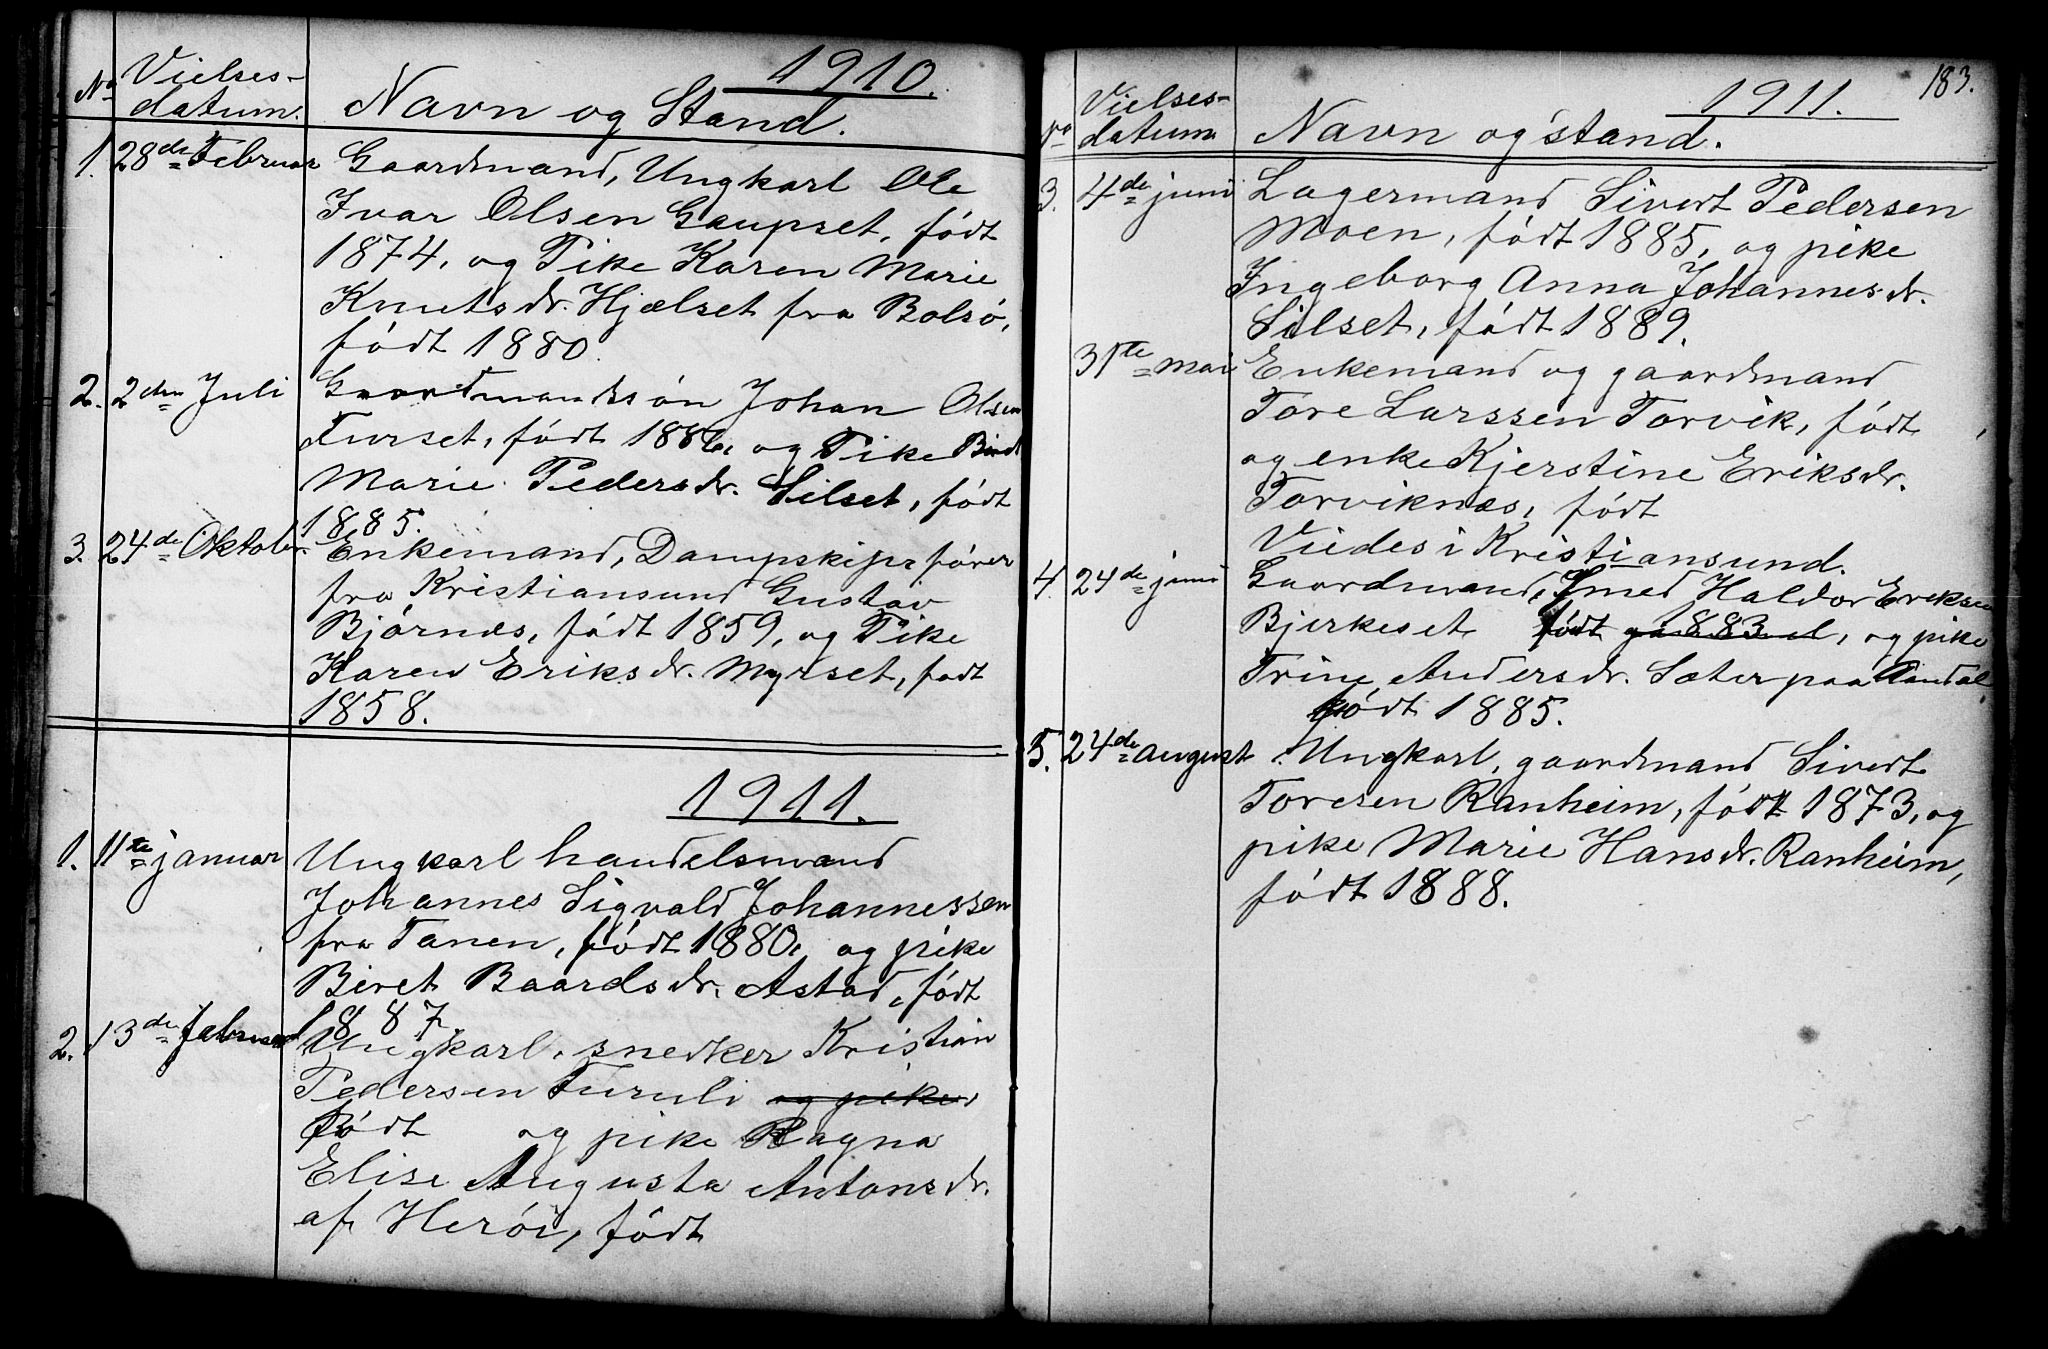 1910.
No Vielses-
datum. Navn og Stand.
1. 28de Februar Gaardmand, Ungkarl Ole
Ivar Olsen Gaupset, født
1874, og Pike Karen Marie
Knutsdr. Hjælset fra Bolsø,
født 1880.
2. 2den Juli Gaardmandssøn Johan Olsen
Furset, født 1886, og Pike
Marie Pedersdr. Silset, født
1885.
3. 24de Oktober Enkemand, Dampskipsfører
fra Kristiansund Gustav
Bjørnæs, født 1859, og Pike
Karen Eriksdr. Myrset, født
1858.
1911.
1. 11te januar Ungkarl handelsmand
Johannes Sigvald Johannessen
fra Tanen, født 1880, og pike
Beret Baardsdr. Astad, født
1887.
2. 13de februar Ungkarl, snedker Kristian
Pedersen Furuli og pike
født og pike Ragna
Elise Augusta Antonsdr.
af Herøi, født
183.
1911.
No Vielses-
datum Navn og stand.
3. 4de juni Lagermand Sivert Pedersen
Moen, født 1885, og pike
Ingeborg Anna Johannesdr.
Silset, født 1889.
31te mai Enkemand og gaardmand
Tore Larssen Torvik, født
og enke Kjerstine Eriksdr.
Torviknæs, født
Viedes i Kristiansund.
4. 24de juni Gaardmand, Smed Haldor Eriksen
Bjerkeset født 1883, og pike
Trine Andersdr. Sæter paa
født 1885.
5. 24de august Ungkarl, gaardmand Sivert
Toresen Ranheim, født 1873, og
pike Marie Hansdr. Ranheim,
født 1888.